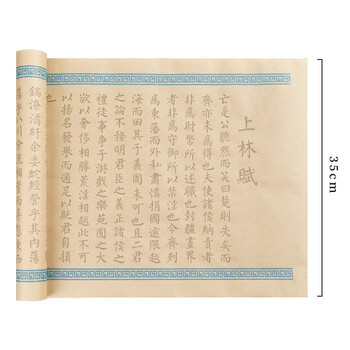 上林賦
亡是公聽然而笑曰楚則失矣而
齊亦未為得也夫使諸侯納貢者
非為財幣所以述職也封疆畫界
者非為守御所以禁淫也今齊列
為東藩而外私肅慎捐國逾限越
海而田其于義固未可也且二君
之論不務明君臣之義正諸侯之
禮徒事爭于游戲之樂苑囿之大
欲以奢侈相勝荒淫相越此不可
以揚名發譽而適足以貶君自損
也
鎬潦潏紆余委蛇經營乎其內蕩
蕩乎八川分流相背而異態東西
35cm